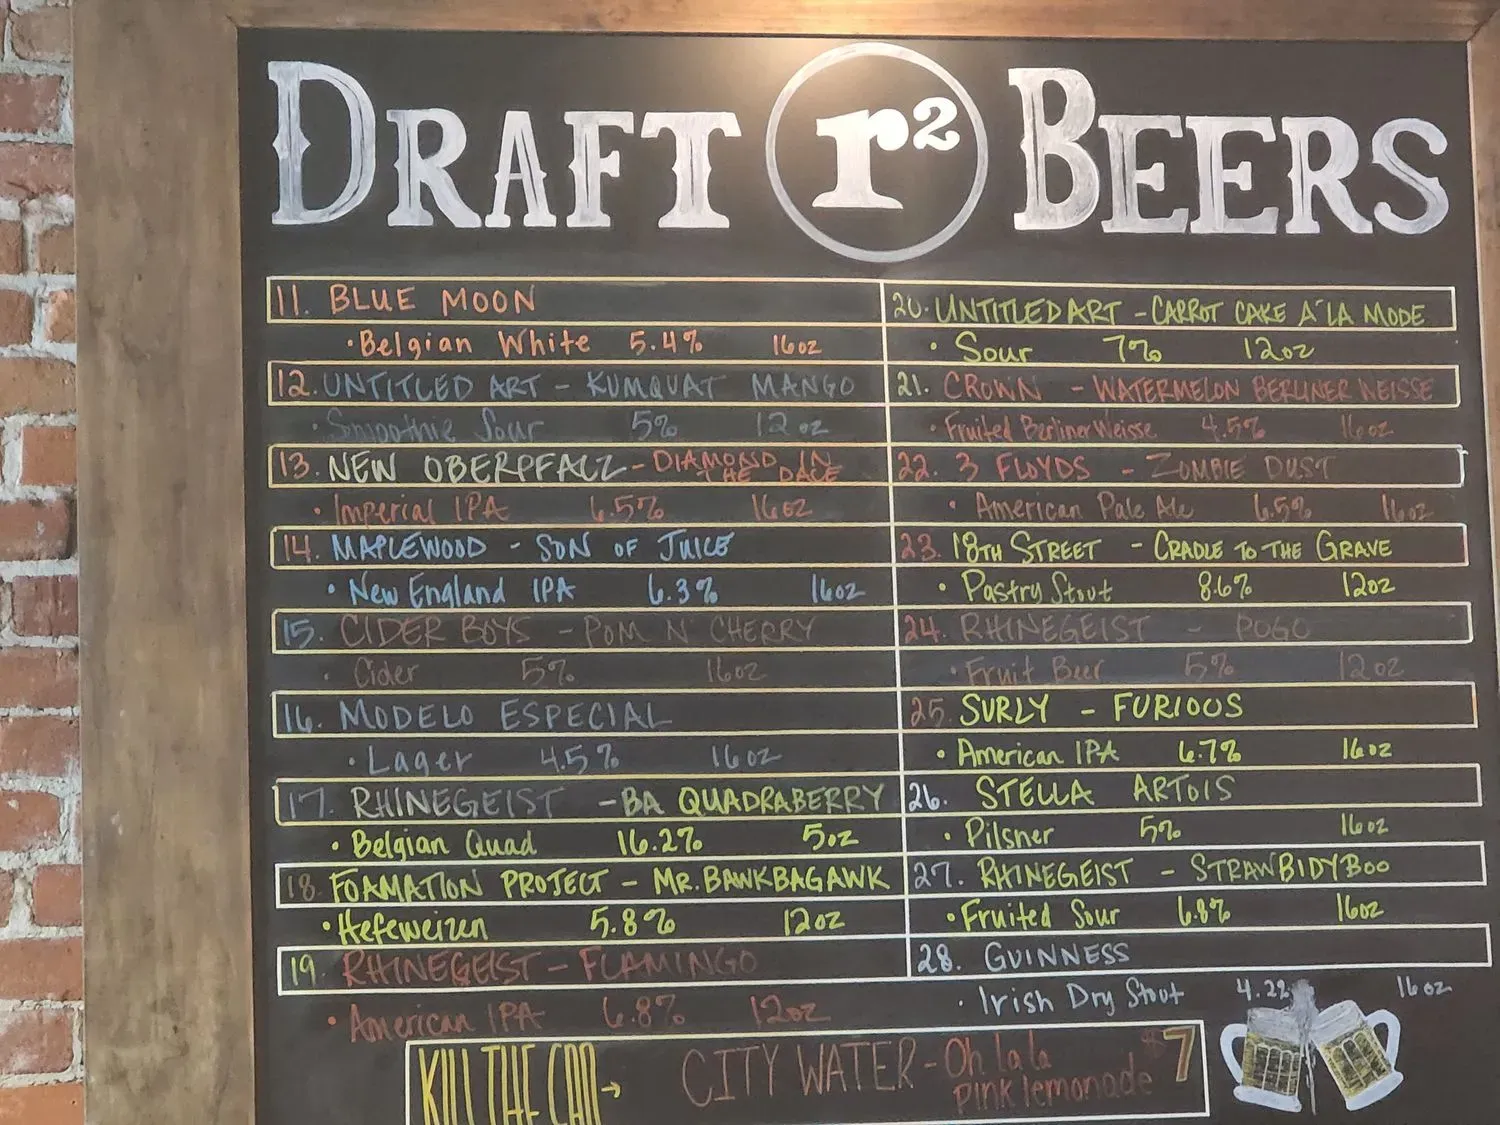 DRAFT r² BEERS
11. BLUE MOON
• Belgian White 5.4% 16oz
12. UNTITLED ART - KUMQUAT MANGO
• Smoothie Sour 5% 12oz
13. NEW OBERPFALZ - DIAMOND IN
THE DACE
• Imperial IPA 6.5% 16oz
14. MAPLEWOOD - SON OF JUICE
• New England IPA 6.3% 16oz
15. CIDER BOYS - POM N' CHERRY
• Cider 5% 16oz
16. MODELO ESPECIAL
• Lager 4.5% 16oz
17. RHINEGEIST - BA QUADRABERRY
• Belgian Quad 16.2% 5oz
18. FOAMATION PROJECT - MR. BAWKBAGAWK
• Hefeweizen 5.8% 12oz
19. RHINEGEIST - FLAMINGO
• American IPA 6.8% 12oz
20. UNTITLED ART - CARROT CAKE A'LA MODE
• Sour 7% 12oz
21. CROWN - WATERMELON BERLINER WEISSE
• Fruited Berliner Weisse 4.5% 16oz
22. 3 FLOYDS - ZOMBIE DUST
• American Pale Ale 6.5% 16oz
23. 18TH STREET - CRADLE TO THE GRAVE
• Pastry Stout 8.6% 12oz
24. RHINEGEIST - POGO
• Fruit Beer 5% 12oz
25. SURLY - FURIOUS
• American IPA 6.7% 16oz
26. STELLA ARTOIS
• Pilsner 5% 16oz
27. RHINEGEIST - STRAWBIDYBOO
• Fruited Sour 6.8% 16oz
28. GUINNESS
• Irish Dry Stout 4.2% 16oz
KILL THE CAN → CITY WATER - Oh la la $7
Pink lemonade